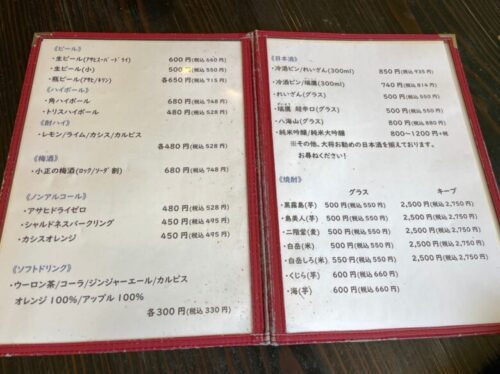 《ビール》
・生ビール(アサヒスーパードライ) 600円(税込660円)
・生ビール(小) 500円(税込550円)
・瓶ビール(アサヒ/キリン) 各650円(税込715円)
《ハイボール》
・角ハイボール 680円(税込748円)
・トリスハイボール 480円(税込528円)
《酎ハイ》
・レモン/ライム/カシス/カルピス
各480円(税込528円)
《梅酒》
・小正の梅酒(ロック/ソーダ割) 680円(税込748円)
《ノンアルコール》
・アサヒドライゼロ 480円(税込528円)
・シャルドネスパークリング 450円(税込495円)
・カシスオレンジ 450円(税込495円)
《ソフトドリンク》
・ウーロン茶/コーラ/ジンジャーエール/カルピス
オレンジ100%/アップル100%
各300円(税込330円)
《日本酒》
・冷酒ビン/れいざん(300ml) 850円(税込935円)
・冷酒ビン/瑞鷹(300ml) 740円(税込814円)
・れいざん(グラス) 500円(税込550円)
・瑞鷹 超辛口(グラス) 500円(税込550円)
・八海山(グラス) 800円(税込880円)
・純米吟醸/純米大吟醸 800〜1200円+税
※その他、大将お勧めの日本酒を揃えております。
お尋ねください！
《焼酎》
グラス キープ
・黒霧島(芋) 500円(税込550円) 2,500円(税込2,750円)
・島美人(芋) 500円(税込550円) 2,500円(税込2,750円)
・二階堂(麦) 500円(税込550円) 2,500円(税込2,750円)
・白岳(米) 500円(税込550円) 2,500円(税込2,750円)
・白岳しろ(米) 550円(税込550円) 2,500円(税込2,750円)
・くじら(芋) 600円(税込660円)
・海(芋) 600円(税込660円)